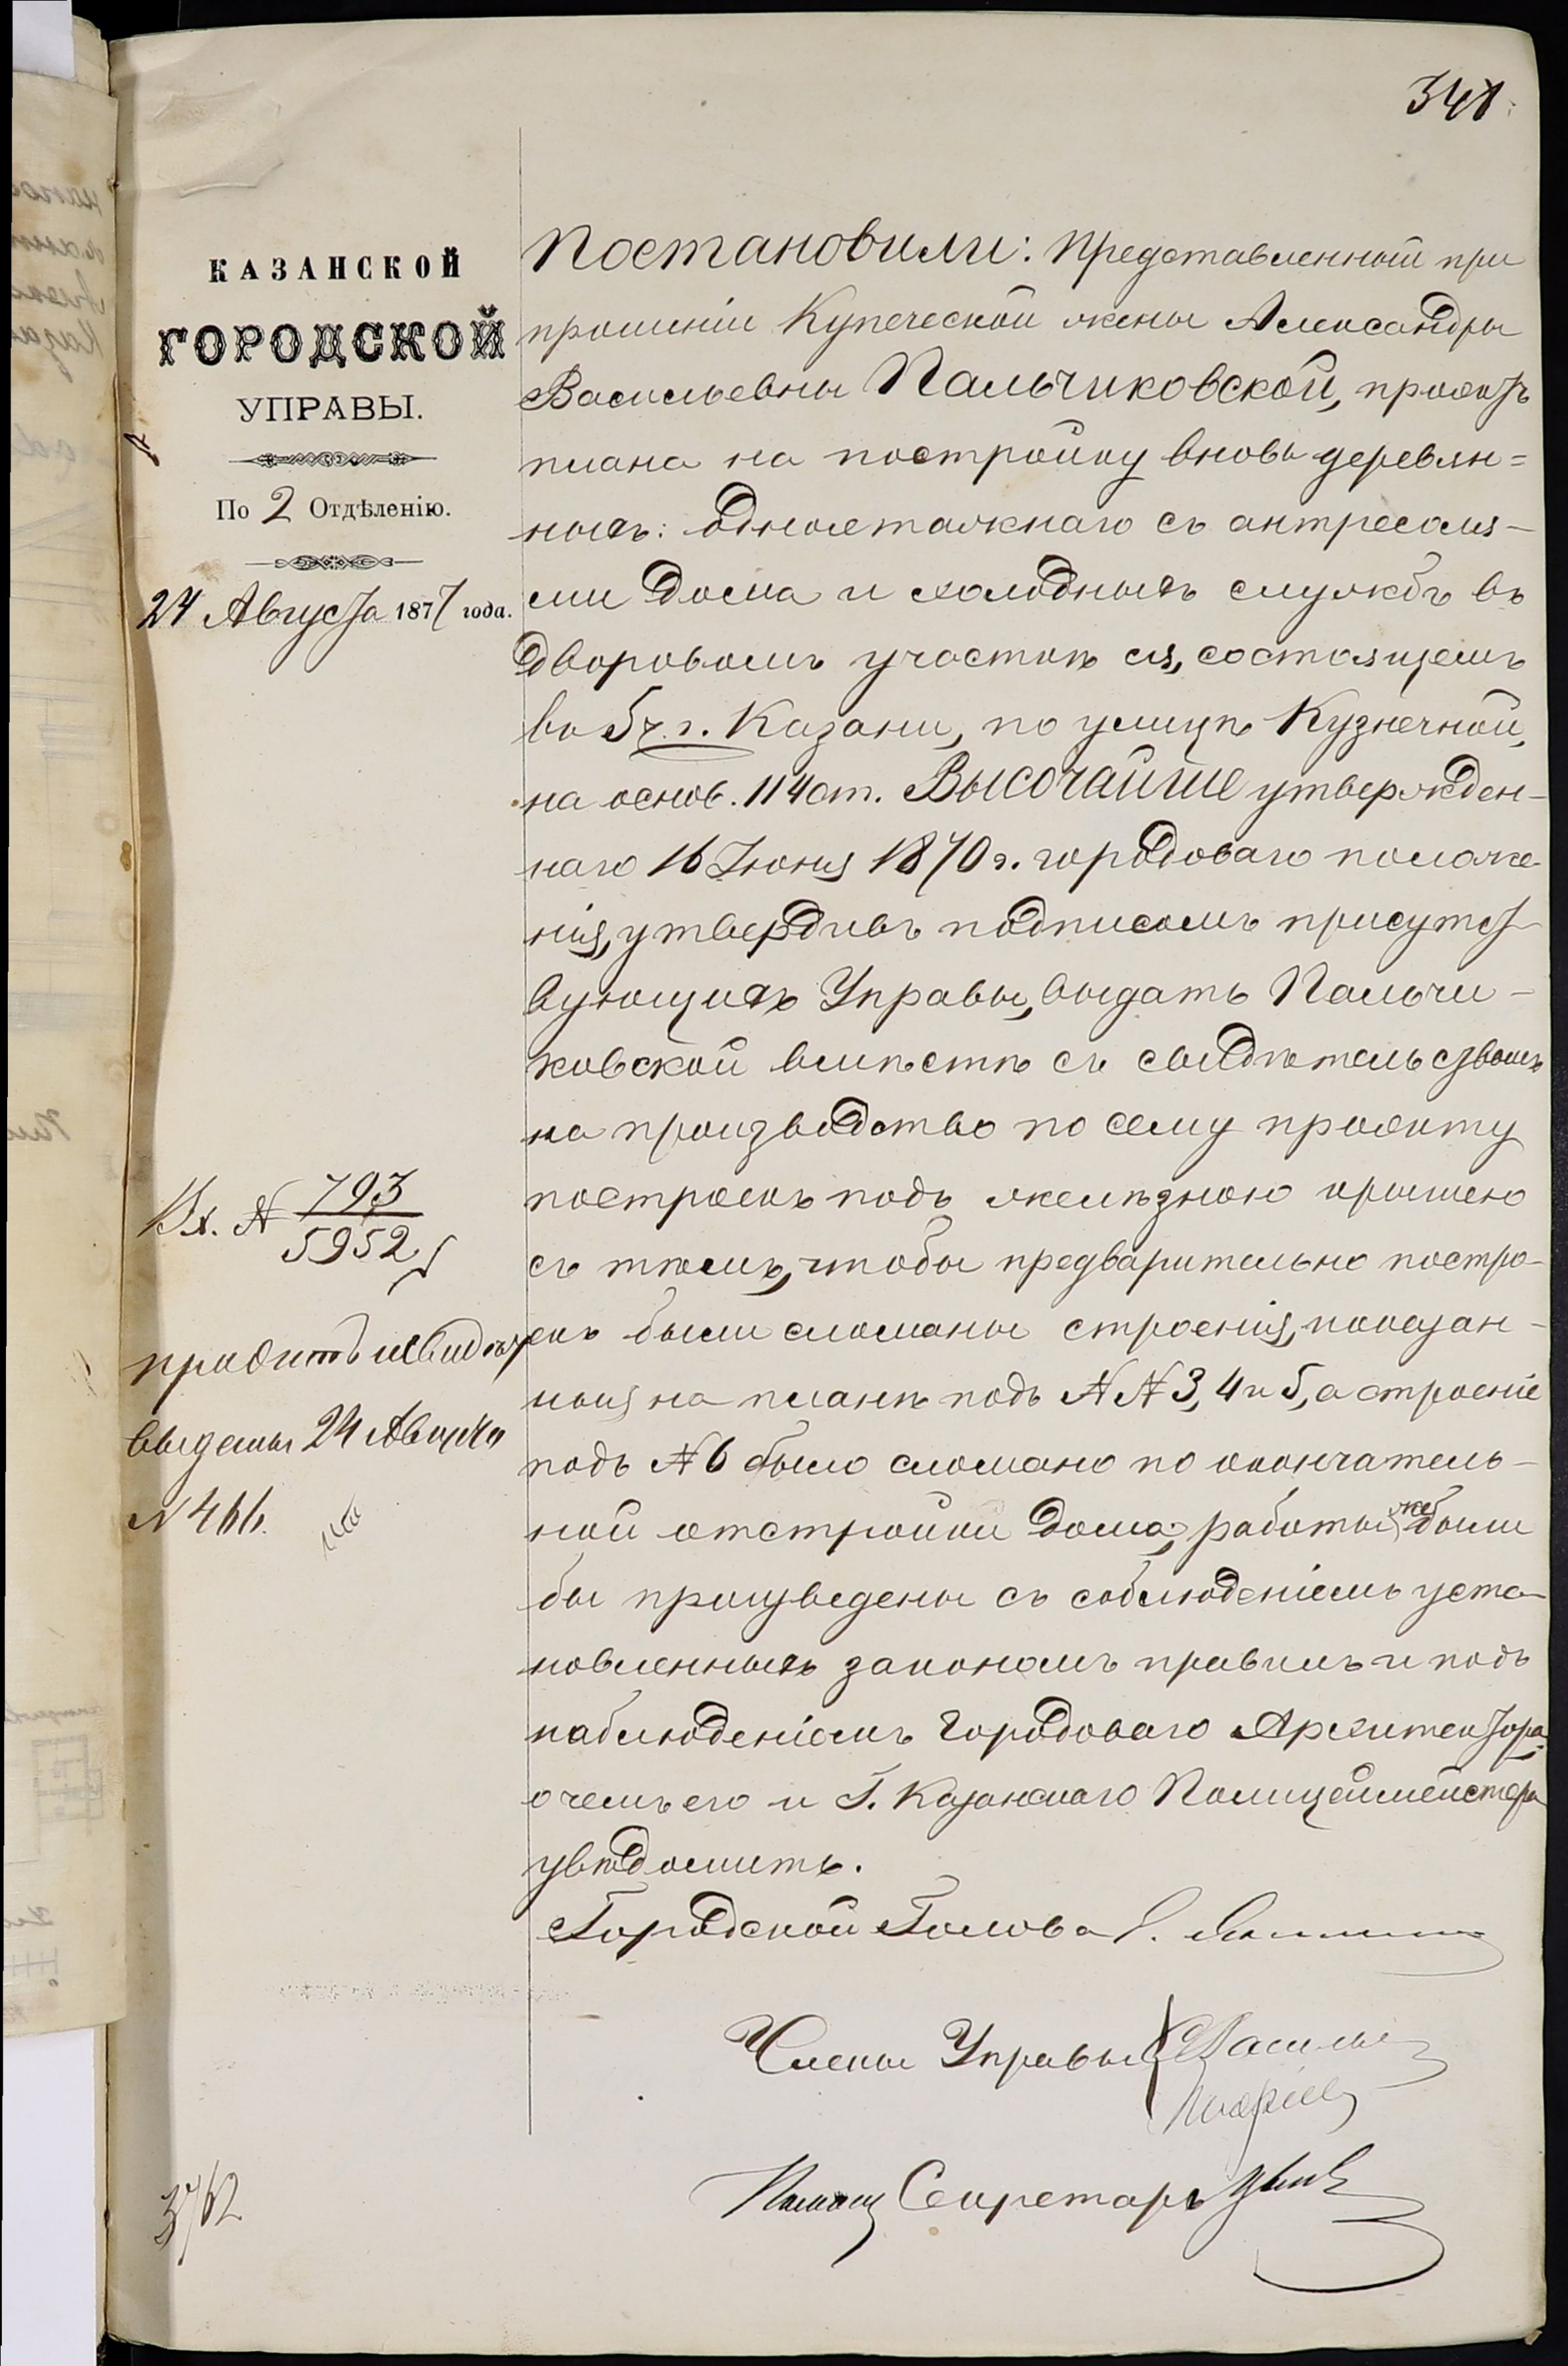 348
КАЗАНСКОЙ
ГОРОДСКОЙ
УПРАВЫ.
По 2 Отдѣленію.
24 Августа 1877 года.
Вх. № 793
5952
выданы 24 Августа
№ 466.
Постановили: Представленный при
прошеніи Купеческой жены Александры
Васильевны Пальчиковской, проэктъ
плана на постройку вновь деревян=
ныхъ: одноэтажнаго съ антресоля-
ми дома и холодныхъ службъ въ
дворовомъ участкѣ ея, состоящемъ
во 5 ч. г. Казани, по улицѣ Кузнечной,
на основ. 114 ст. Высочайше утвержден-
наго 16 Іюня 1870 г. городоваго положе
нія, утвердивъ подписомъ присутст-
вующихъ Управы, выдать Пальчи-
ковской вмѣстѣ съ свидѣтельствомъ
на производство по сему проэкту
построекъ подъ желѣзною крышею
съ тѣмъ, чтобы предварительно постро-
екъ были сломаны строенія, показан-
ныя на планѣ подъ №№ 3, 4 и 5, а строеніе
подъ № 6 было сломано по окончатель-
ной отстройки дома; работы же были
бы произведены съ соблюденіемъ уста-
новленныхъ закономъ правилъ и подъ
наблюденіемъ Городоваго Архитектора,
о чемъ его и Г. Казанскаго Полицеймейстера
увѣдомить.
Городской Голова
Члены Управы
Помощ Секретарь
3762